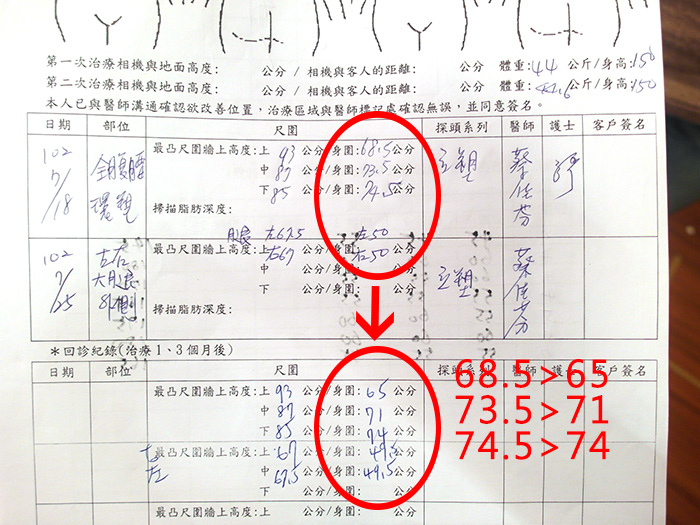 第一次治療相機與地面高度: 公分 / 相機與客人的距離: 公分 體重:44 公斤/身高:150
第二次治療相機與地面高度: 公分 / 相機與客人的距離: 公分 體重: 公斤/身高:150
本人已與醫師溝通確認欲改善位置，治療區域與醫師標記處確認無誤，並同意簽名。
日期 部位 尺圍 探頭系列 醫師 護士 客戶簽名
102 7/18 環塑 最凸尺圍牆上高度:上 93 公分/身圍:68.5公分 立塑 蔡佳芬
中 87 公分/身圍:73.5公分
下 85 公分/身圍:74.5公分
掃描脂肪深度:
左67.5 左50
102 7/25 左右大腿外側 最凸尺圍牆上高度:上 右67 公分/身圍:右50公分 立塑 蔡佳芬
中 公分/身圍: 公分
下 公分/身圍: 公分
掃描脂肪深度:
＊回診紀錄(治療1、3個月後)
日期 部位 尺圍 探頭系列 醫師 護士 客戶簽名
最凸尺圍牆上高度:上 93 公分/身圍:65 公分
中 87 公分/身圍:71 公分
下 85 公分/身圍:74 公分
68.5>65
73.5>71
74.5>74
右 最凸尺圍牆上高度:上 67 公分/身圍:49.5公分
左 中 67.5 公分/身圍:49.5公分
下 公分/身圍: 公分
最凸尺圍牆上高度:上 公分/身圍: 公分